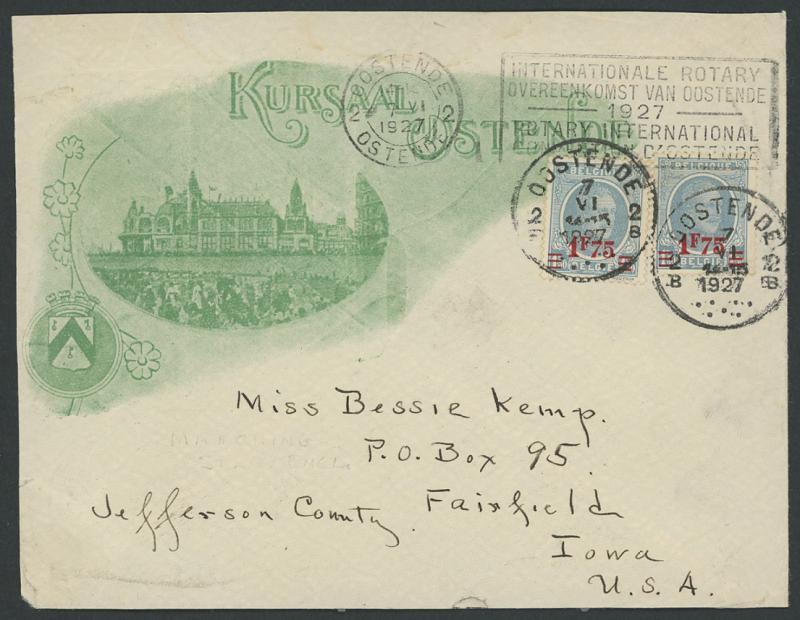 KURSAAL
OSTENDE
OOSTENDE
7 VI
2 2
1927
OSTENDE
INTERNATIONALE ROTARY
OVEREENKOMST VAN OOSTENDE
1927
ROTARY INTERNATIONAL
D'OSTENDE
BELGIQUE
OOSTENDE
7
VI
2 2
14-15
1927
B
1F75
BELGIË
BELGIQUE
OOSTENDE
7
VI
2 2
14-15
B 1927 B
1F75
BELGIË
Miss Bessie Kemp.
P.O. Box 95.
Jefferson County Fairfield
Iowa
U.S.A.